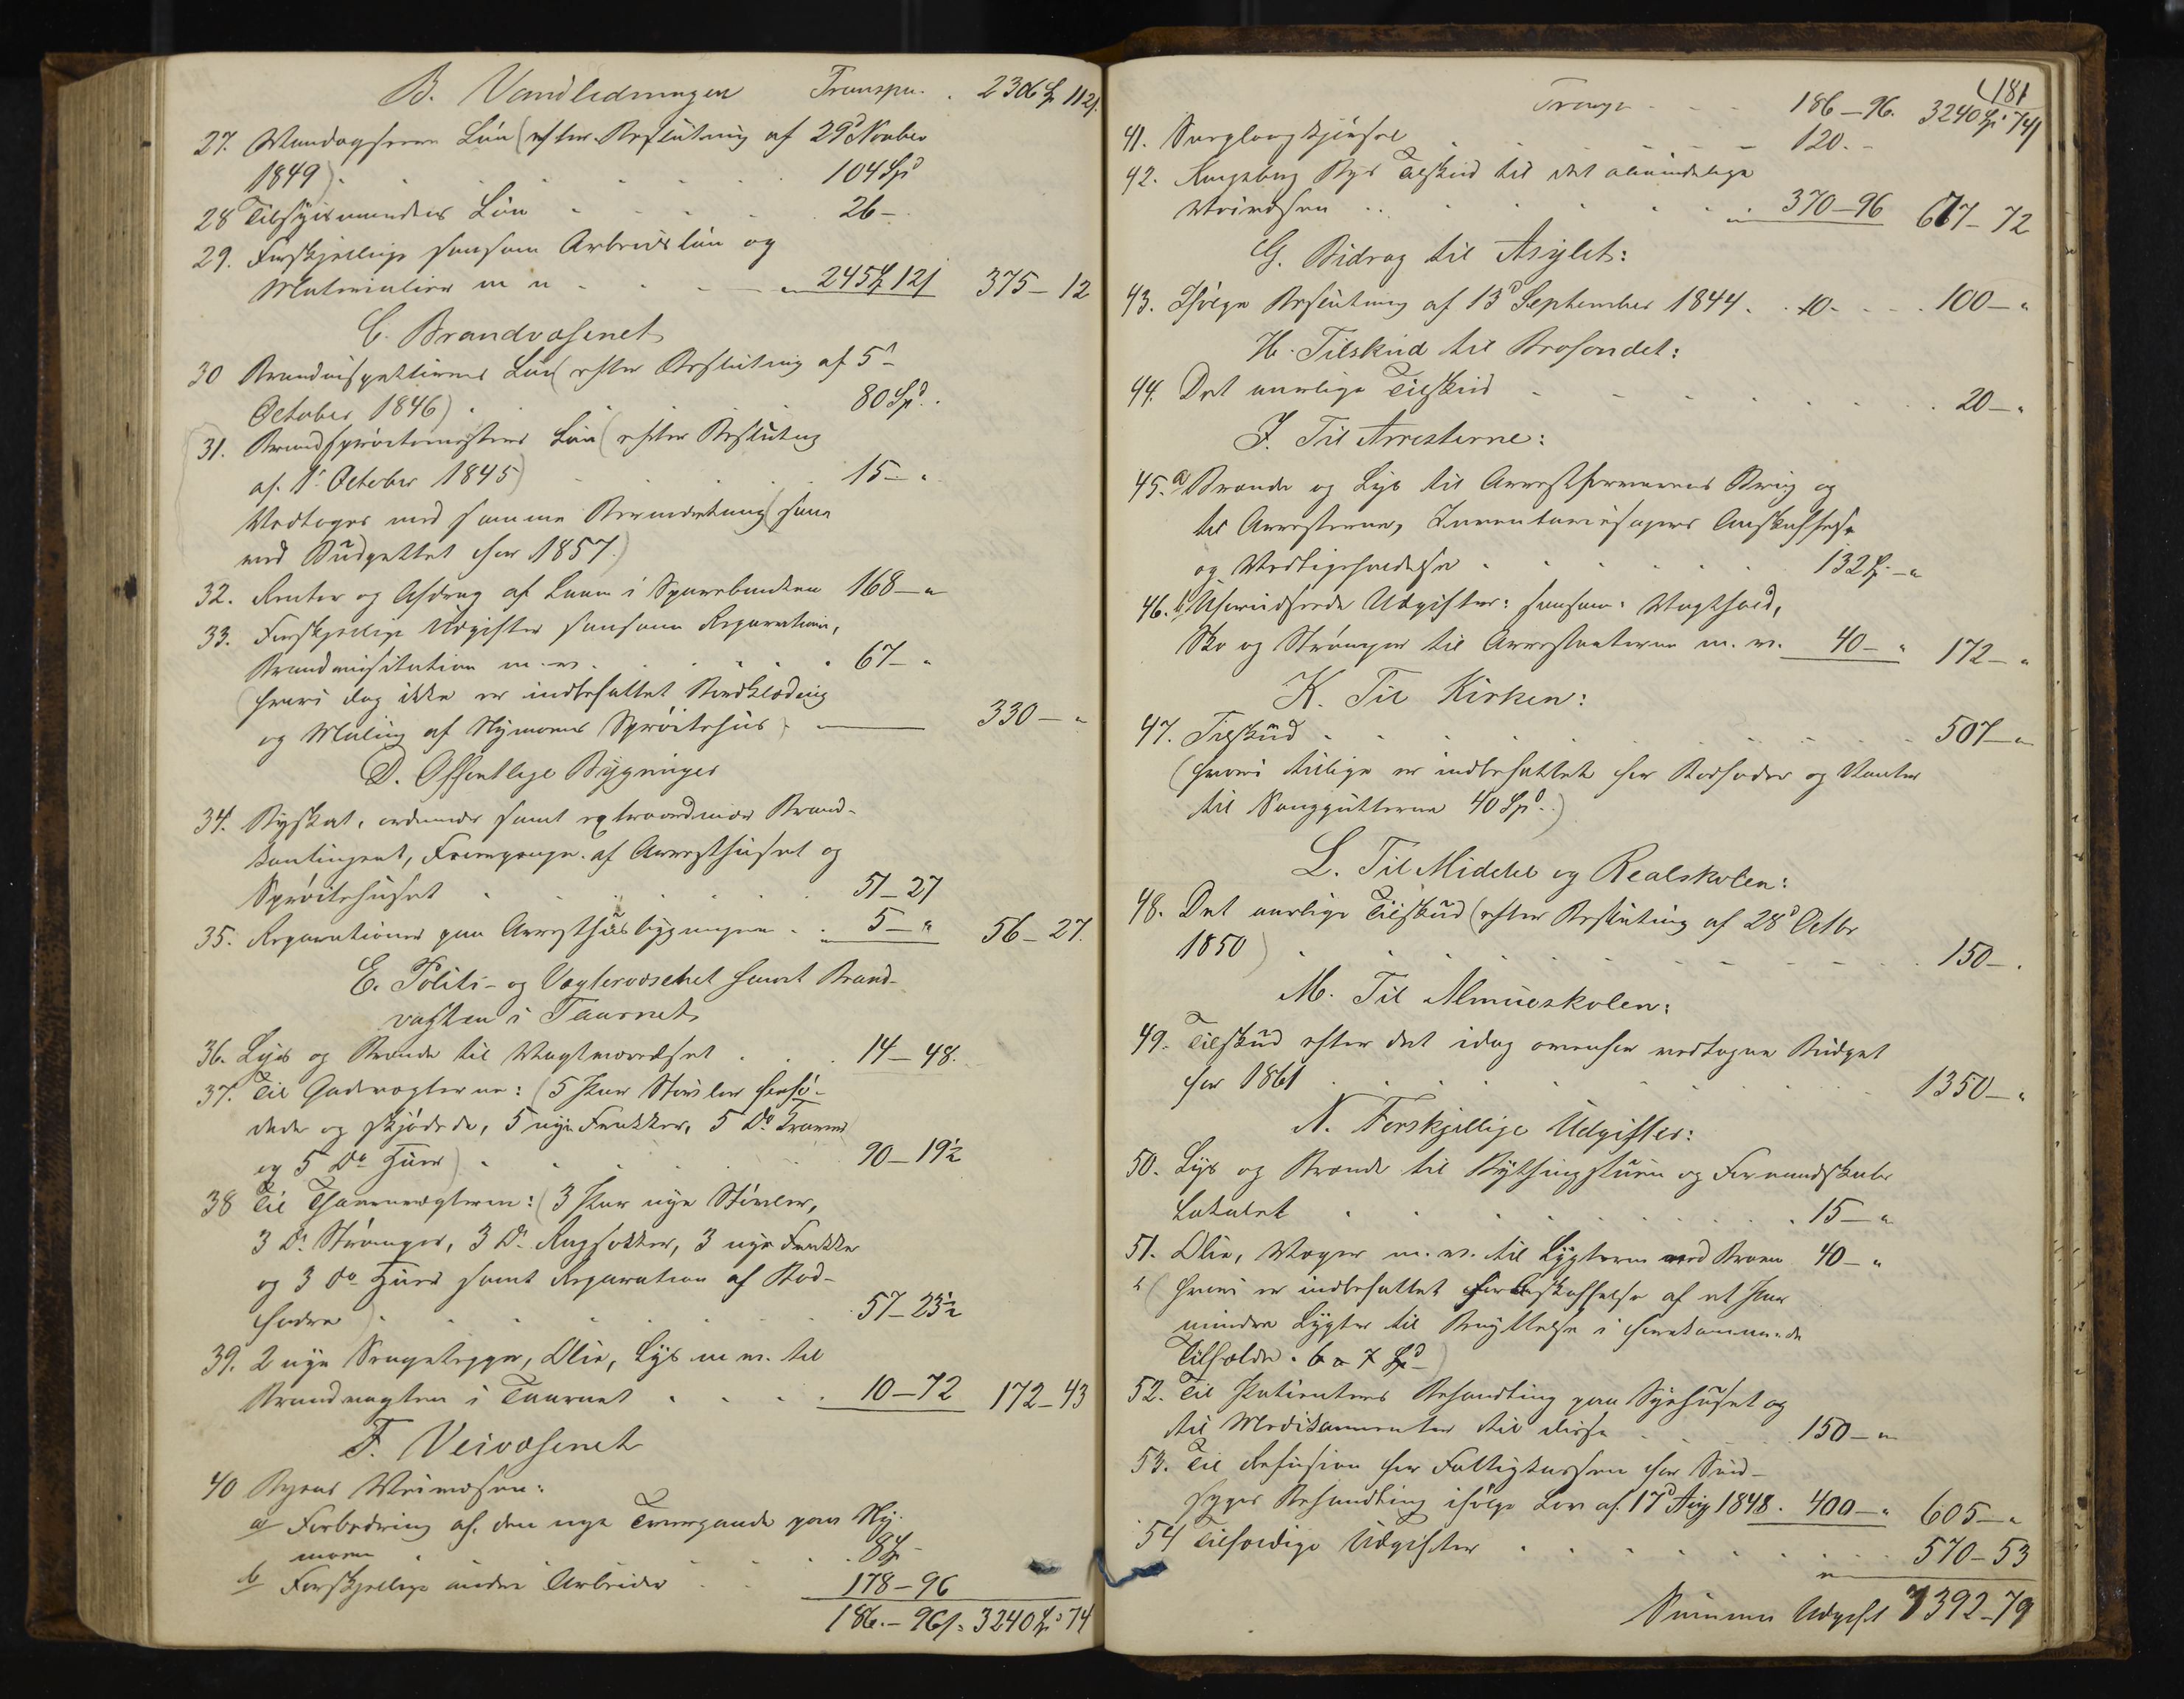 B. Vandledningen Transpn. . 2306 Sp 112 s.
27. Vandagserens Løn (efter Beslutning af 29d November
1849) . . . . 104 Spd
28 Tilsynsmandens Løn . . . 26 –
29. Forskjellige saasom Arbeidsløn og
Materialier m m . . . „ 245 Sp 12 s 375 – 12
C. Brandvæsenet
30 Brandinspektionens Løn (efter Beslutning af 5te
October 1846) . . . 80 Spd.
31. Brandsprøitemesterens Løn (efter Beslutning
af 1. October 1845) . . . 15 – „
Vedtoges med samme Bemærkning (som
ved Budgettet for 1857.)
32. Renter og Afdrag af Laan i Sparebanken 168 – „
33. Forskjellige Udgifter saasom Reparation,
Brandvisitation m. v. . . . 67 – „
(hvori dog ikke er indbefattet Bordklædning
og Maling af Nymoens Sprøitehus) . 330 – „
D. Offentlige Bygninger
34. Byskat, ordinær samt extraordinær Brand-
kontingent, af Arresthuset og
Sprøitehuset . . . 51 – 27
35. Reparationer paa Arresthusbygningen . . 5 – „ 56 – 27.
E. Politi- og Vægtervæsenet samt Brand-
vagten i Taarnet
36. Lys og Brænde til Vagtværelset . . . 14 – 48.
37. Til Gadevægterne: (5 Par Støvler forfø-
dede og skjødede, 5 nye Frakker, 5 Do
og 5 Do Huer) . . . 90 – 19½
38 Til Taarnvægterne: (3 Par nye Støvler,
3 Do Strømper, 3 Do Ragsokker, 3 nye Frakker
og 3 do Huer samt Reparation af Bod-
foder) . . . 57 – 23½
39. 2 nye Sengetepper, Olie, Lys m. v. til
Brandvagten i Taarnet . . . 10 – 72 172 – 43
F. Veivæsenet
40 Byens Veivæsen:
a) Forbedring af den nye Tvergade paa Ny-
moen . . . 8 Sp –
b Forskjellige andre Arbeider . . 178 – 96
186. – 96 s. 3240 Sp 74
(181
Transp . . . 186 – 96. 3240 Sp 74 s
41. . . . 120. –
42. Kongsberg Byes Tilskud til det almindelige
Veivæsen . . . 370 – 96 677 – 72
G. Bidrag til Asylet:
43. Ifølge Beslutning af 13d September 1844 . . 10 . . . 100 – „
H. Tilskud til Brofondet:
44. Det aarlige Tilskud . . . 20 – „
J. Til Arresterne:
45. a) Brænde og Lys til Arrestforvarerens Brug og
til Arresterne, Inventariesagers Anskaffelse
og Vedligeholdelse . . . 132 Sp. – „
46. b) Uforudseede Udgifter: saasom: Vagthold,
Sko og Strømper til Arrestanterne m. v. 40 – „ 172 – „
K. Til Kirken:
47. Tilskud . . . 507 – „
(hvori tillige er indbefattet for Bodfoder og Vanter
til Sanggutterne 40 Spd.)
L. Til Middel og Realskolen:
48. Det aarlige Tilskud (efter Beslutning af 28d Octbr
1850) . . . 150 – .
M. Til Almueskolen:
49. Tilskud efter det idag ovenfor vedtagne Budget
for 1861 . . . 1350 – „
N. Forskjellige Udgifter:
50. Lys og Brænde til Bythingstuen og Formandskabs
Lokalet . . . 15 – „
51. Olie, Væger m. v. til Lygterne ved Broen 40 – „
(hvori er indbefattet for Anskaffelse af et Par
mindre Lygter til Benyttelse i forekommende
Tilfælde . 6 a 7 Spd –)
52. Til Patienters Behandling paa Sygehuset og
til Medikamenter til disse . . . 150 – „
53. Til Refusion for Fattigkassen for Sind-
syges Behandling ifølge Lov af 17d Aug 1848. 400 – „ 605 – „
54 Tilfældige Udgifter . . . 570 – 53
Summa Udgift 7392 – 79